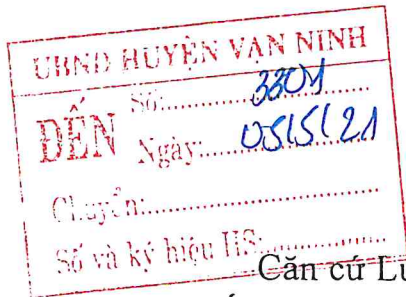 UBND HUYỆN VẠN NINH
ĐẾN
Số:.......3301.......
Ngày:.....05/5/21
Chuyển:..............................
Số và ký hiệu HS:..............
Căn cứ Lu